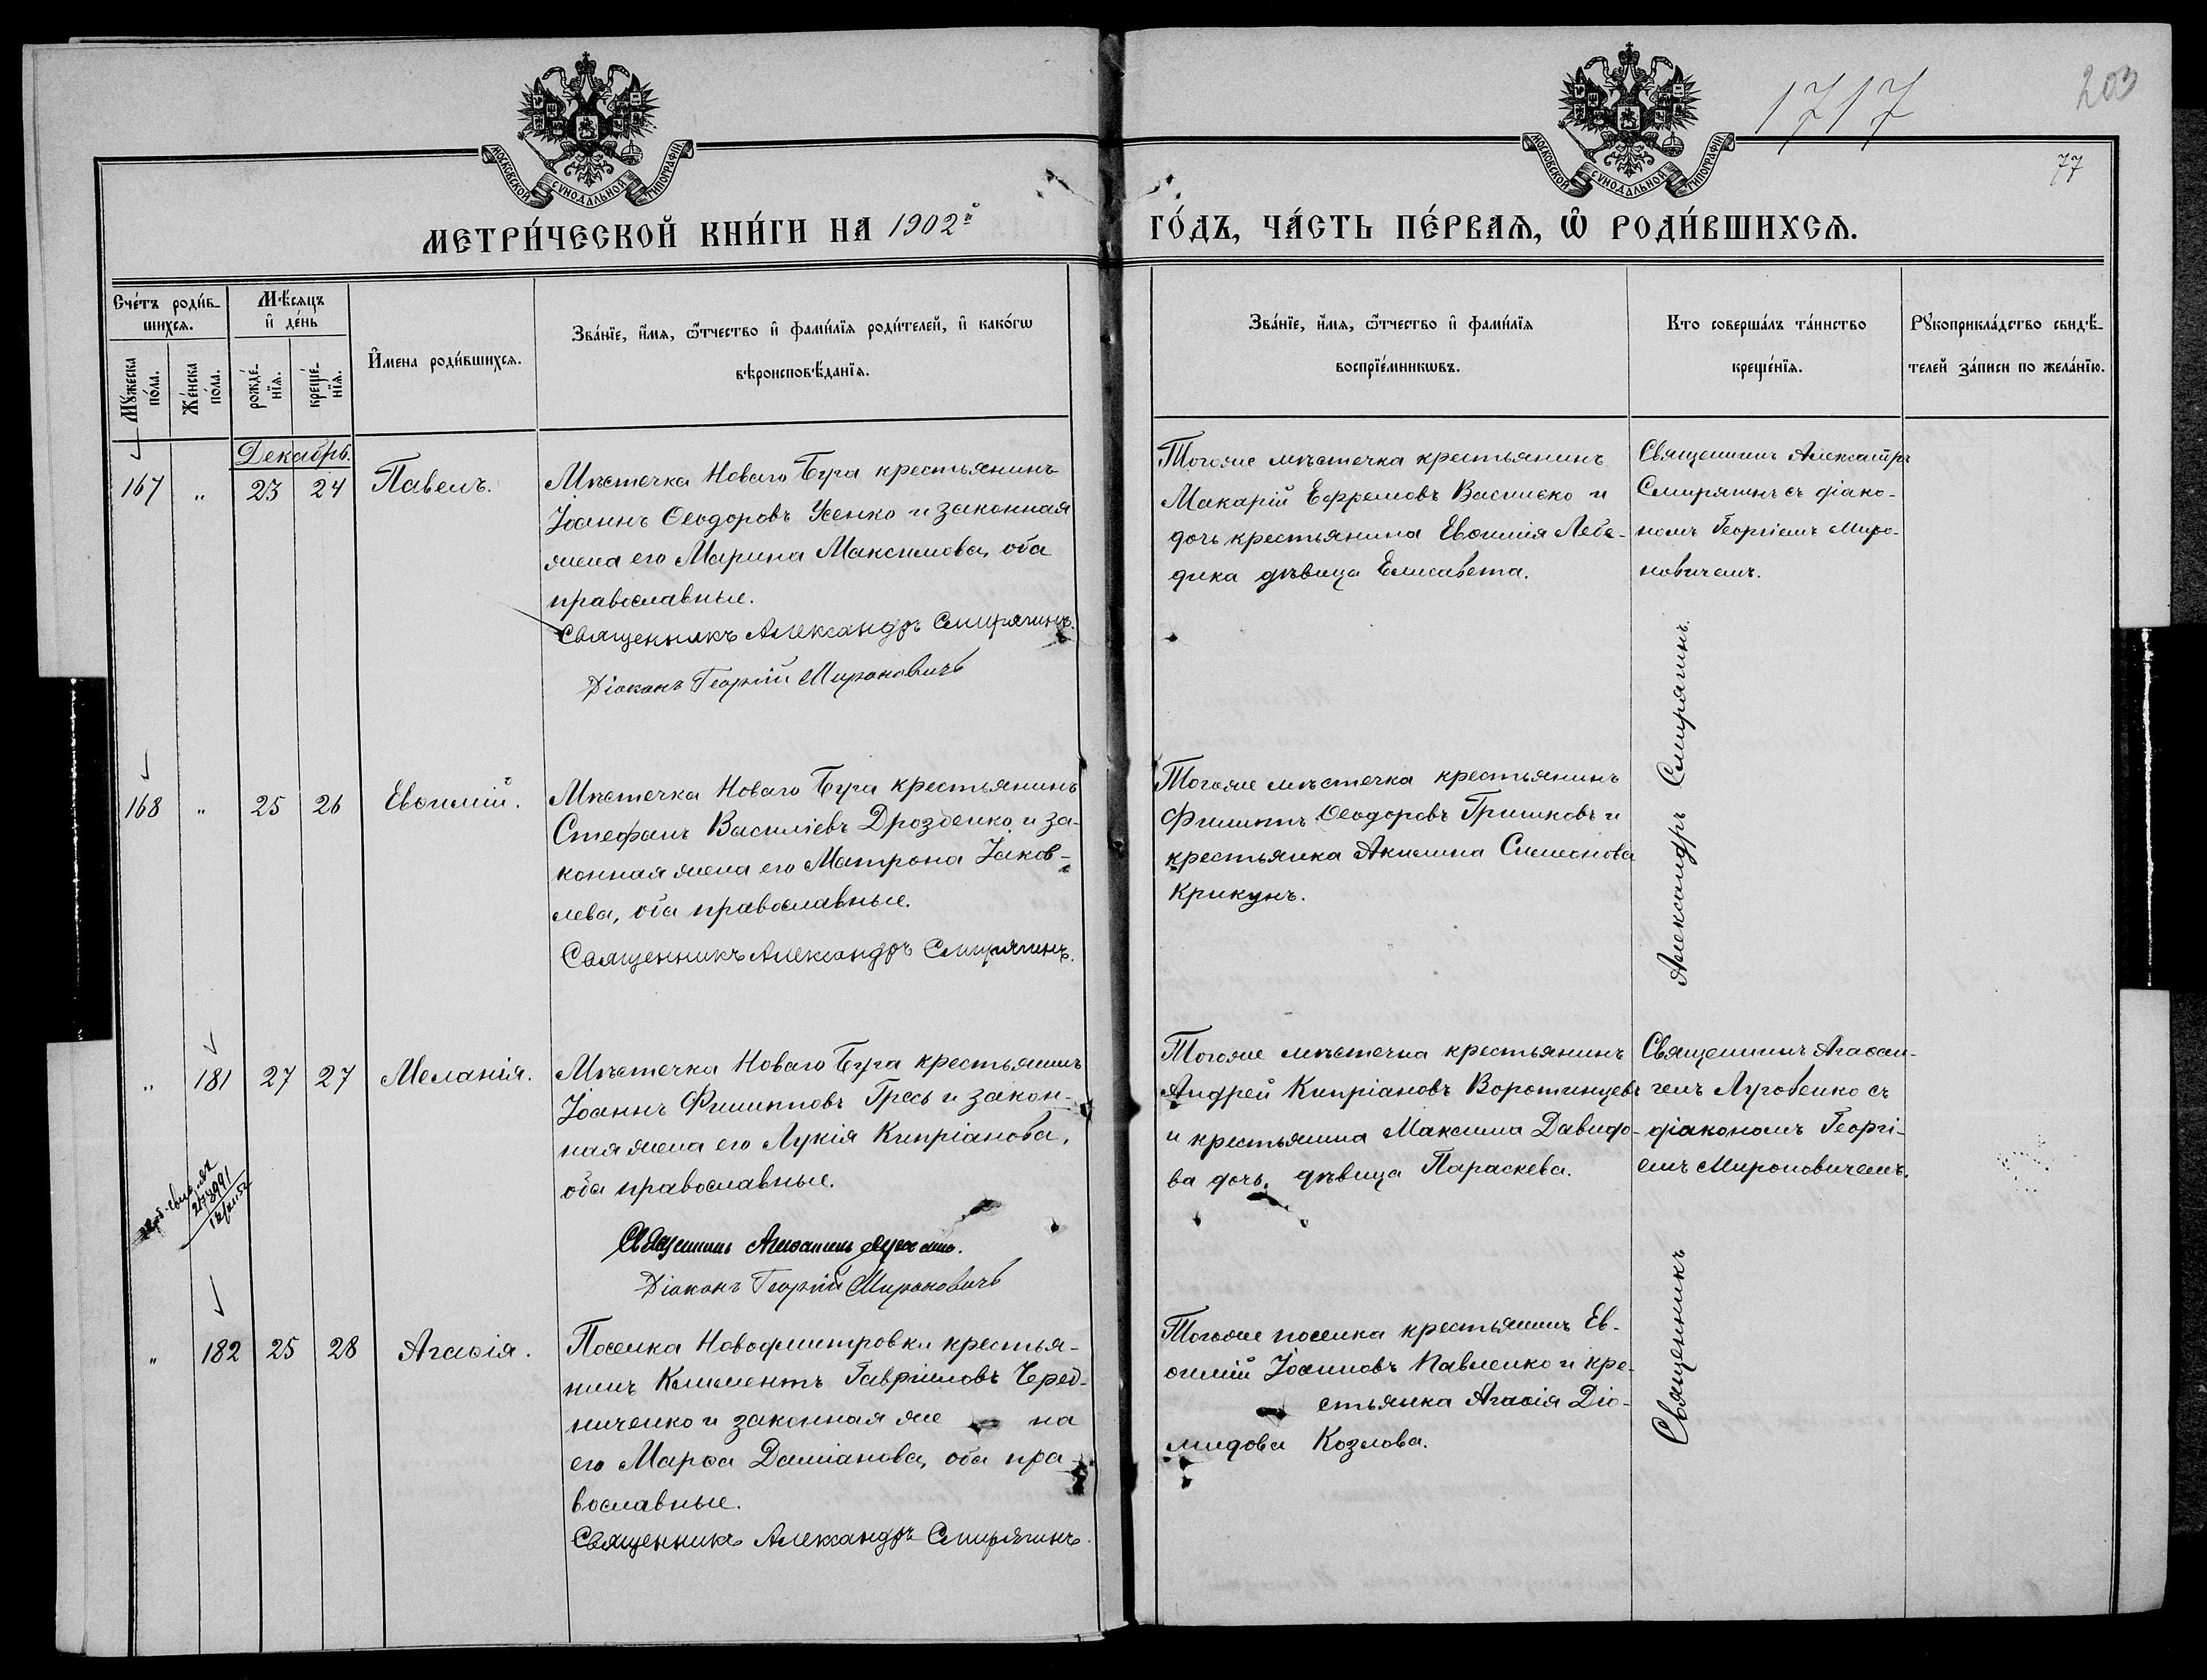 1717
203
77
МОСКОВСКОЙ СѴНОДАЛЬНОЙ ТИПОГРАФІИ
МОСКОВСКОЙ СѴНОДАЛЬНОЙ ТИПОГРАФІИ
МЕТРИ́ЧЕСКОЙ КНИ́ГИ НА 1902й
ГО́ДЪ, ЧА́СТЬ ПЕ́РВАѦ, Ѽ РОДИ́ВШИХСѦ.
Сче́тъ роди́в-
шихсѧ.
Мꙋ́жеска
по́ла.
Же́нска
по́ла.
Мѣ́сѧцъ
и҆ де́нь
рожде́-
нїѧ.
креще́-
нїѧ.
И҆мена роди́вшихсѧ.
Зва́нїе, и҆́мѧ, ѻ҆́тчество и҆ фами́лїѧ роди́телей, и҆ како́гѡ
вѣроисповѣ́данїѧ.
Зва́нїе, и҆́мѧ, ѻ҆́тчество и҆ фами́лїѧ
воспрїе́мникѡвъ.
Кто соверша́лъ та́инство
креще́нїѧ.
Рꙋкоприкла́дство свидѣ́-
телей за́писи по жела́нїю.
Декабрь.
167 " 23 24 Павелъ.
Мѣстечка Новаго Буга крестьянинъ
Іоаннъ Ѳеодоровъ Усенко и законная
жена его Марина Максимова, оба
православные.
Священникъ Александръ Смирягинъ.
Діаконъ Георгій Мироновичъ
Тогоже мѣстечка крестьянинъ
Макарій Ефремовъ Василєко и
дочь крестьянина Евѳимія Лебе-
дика дѣвица Елисавета.
Священникъ Александръ
Смирягинъ съ діако-
номъ Георгіемъ Миро-
новичемъ.
168 " 25 26 Евѳимій.
Мѣстечка Новаго Буга крестьянинъ
Стефанъ Василіевъ Дрозденко и за-
конная жена его Матрона Іаков-
лева, оба православные.
Священникъ Александръ Смирягинъ.
Тогоже мѣстечка крестьянинъ
Филиппъ Ѳеодоровъ Гришковъ и
крестьянка Акилина Симеонова
Крикунъ.
" 181 27 27 Меланія.
Мѣстечка Новаго Буга крестьянинъ
Іоаннъ Филипповъ Гресь и закон-
ная жена его Лукія Кипріанова,
оба православные.
Священникъ Агаѳангелъ Луговенко.
Діаконъ Георгій Мироновичъ
Тогоже мѣстечка крестьянинъ
Андрей Кипріановъ Воротинцевъ
и крестьянина Максима Давидо-
ва дочь, дѣвица Параскева.
Священникъ Агаѳан-
гелъ Луговенко съ
діакономъ Георгі-
емъ Мироновичемъ.
" 182 25 28 Агаѳія.
Поселка Новодмитровки крестья-
нинъ Климентъ Гавріиловъ Черед-
ниченко и законная же на
его Марѳа Даміанова, оба пра-
вославные.
Священникъ Александръ Смирягинъ.
Тогоже поселка крестьянинъ Ев-
ѳимій Іоанновъ Павленко и кре-
стьянка Агаѳія Діо-
мидова Козлова.
Священникъ Александръ Смирягинъ.